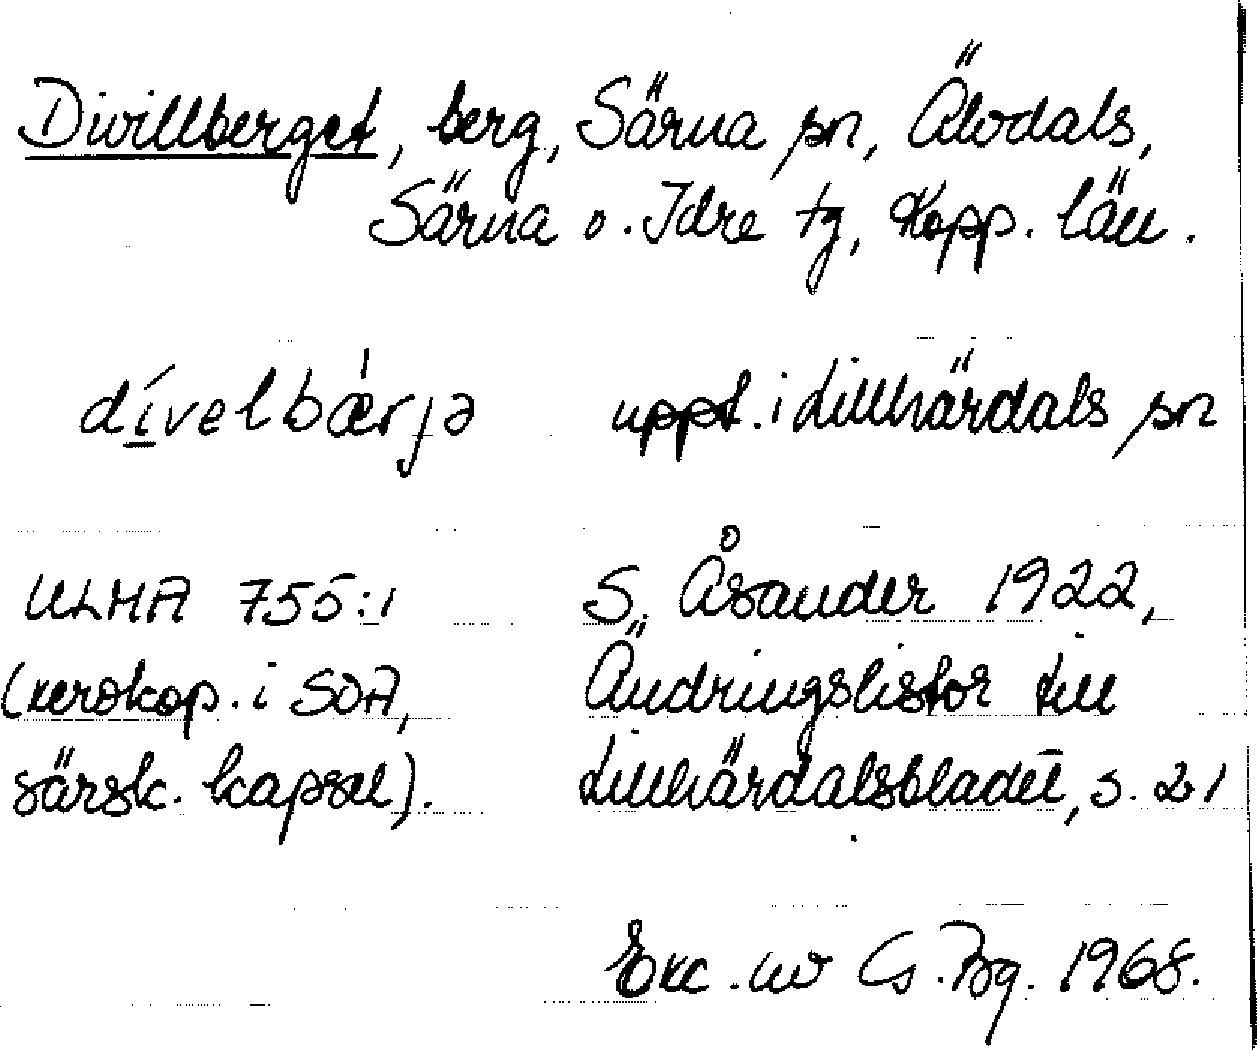 Divillberget, berg, Särna sn, Älvdals,
Särna o. Idre tg, Kopp. län.
dívelbærjə uppt. i Lillhärdals sn
ULMA 755:1 S. Åsander 1922,
(xerokop. i SOA, Ändringslistor till
särsk. kapsel). Lillhärdalsbladet, s. 21
Exc. av G. Bg. 1968.